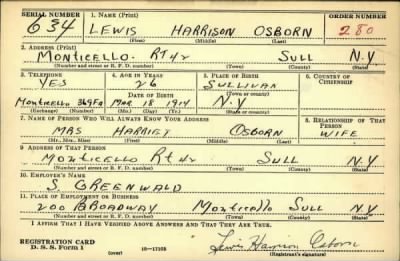 SERIAL NUMBER 1. NAME (Print) ORDER NUMBER
634 LEWIS HARRISON OSBORN 280
(First) (Middle) (Last)
2. ADDRESS (Print)
MONTICELLO. RT 4 SULL N.Y
(Number and street or R. F. D. number) (Town) (County) (State)
3. TELEPHONE 4. AGE IN YEARS 5. PLACE OF BIRTH 6. COUNTRY OF CITIZENSHIP
YES 26 SULLIVAN
DATE OF BIRTH (Town or county)
MONTICELLO MAR 18 1914 N.Y
(Exchange) (Number) (Mo.) (Day) (Yr.) (State or country)
7. NAME OF PERSON WHO WILL ALWAYS KNOW YOUR ADDRESS 8. RELATIONSHIP OF THAT PERSON
MRS HARRIET OSBORN WIFE
(Mr., Mrs., Miss) (First) (Middle) (Last)
9. ADDRESS OF THAT PERSON
MONTICELLO Rt 4 SULL N.Y
(Number and street or R. F. D. number) (Town) (County) (State)
10. EMPLOYER'S NAME
S. GREENWALD
11. PLACE OF EMPLOYMENT OR BUSINESS
200 BROADWAY Monticello SULL N.Y
(Number and street or R. F. D. number) (Town) (County) (State)
I AFFIRM THAT I HAVE VERIFIED ABOVE ANSWERS AND THAT THEY ARE TRUE.
REGISTRATION CARD
D. S. S. FORM 1 (over) Lewis Harrison Osborn
(Registrant's signature)